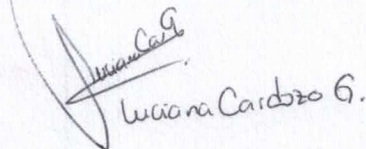 LucianaCarG
Luciana Cardozo G.